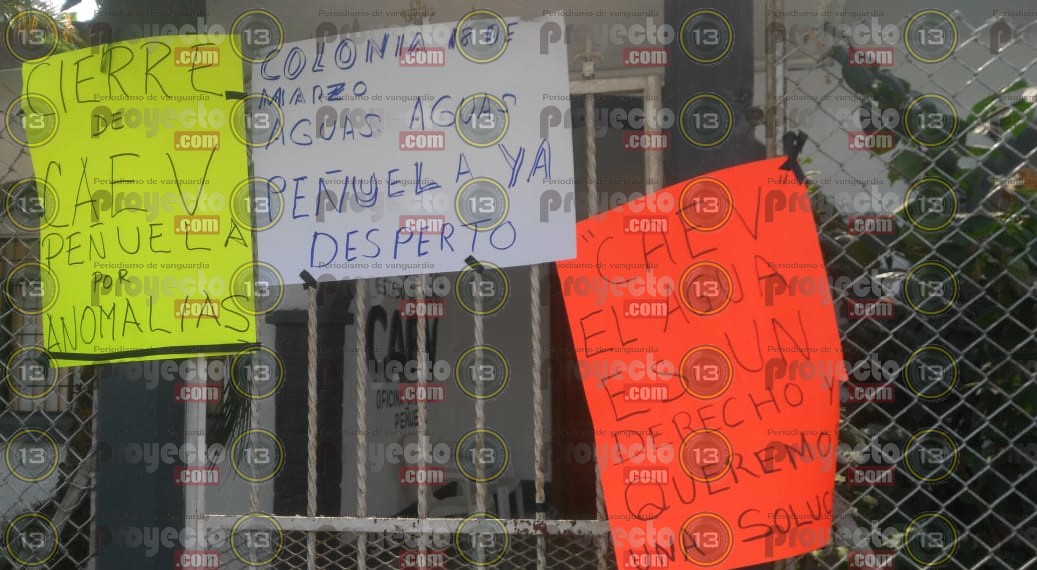 CIERRE
DE
CAEV
PEÑUELA
POR
ANOMALIAS
COLONIA 18 DE
MARZO
AGUAS AGUAS
PEÑUELA YA
DESPERTO
"CAEV"
EL AGUA
ES UN
DERECHO Y
QUEREMO
UNA SOLUC
CAEV
OFICIN
PEÑUE
Periodismo de vanguardia
Proyecto 13
.com